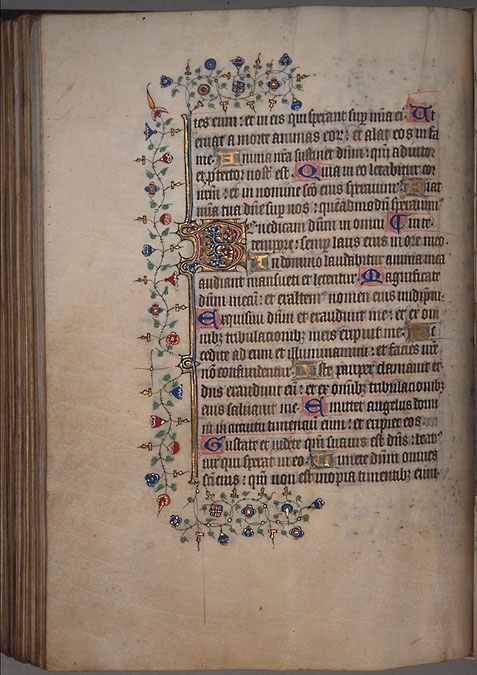 tes eum : et in eis qui sperant sup mīa ei. Ut
eruat a morte animas eor : et alat eos in fa
me. Anima nr̄a sustinet dn̄m : qm̄ adiutor
et ptector nost̄ est. Quia in eo letabitur cor
nr̄m : et in nomine sc̄o eius sperauimꝰ. Fiat
mīa tua dn̄e sup nos : quēadmodū sperauimꝰ
Benedicam dn̄m in omni in te.
tempore : semp laus eius in ore meo.
In domino laudabitur anima mea
audiant mansueti et letentur. Magnificate
dn̄m mecū : et exaltemꝰ nomen eius in idipm̄
Exquisiui dn̄m et exaudiuit me : et ex om
nibꝫ tribulacionibꝫ meis eripuit me. Ac
cedite ad eum et illuminamini : et facies ur̄e
non confundentur. Iste pauper clamauit et
dn̄s exaudiuit eū : et ex om̄ibꝫ tribulacionibꝫ
eius saluauit me. Emittet angelus domi
ni in circuitu timentiū eum : et eripiet eos.
Gustate et uidete qm̄ suauis est dn̄s : beatꝰ
uir qui sperat in eo. Timete dn̄m omnes
sc̄i eius : qm̄ non est inopia timentibꝫ eum.